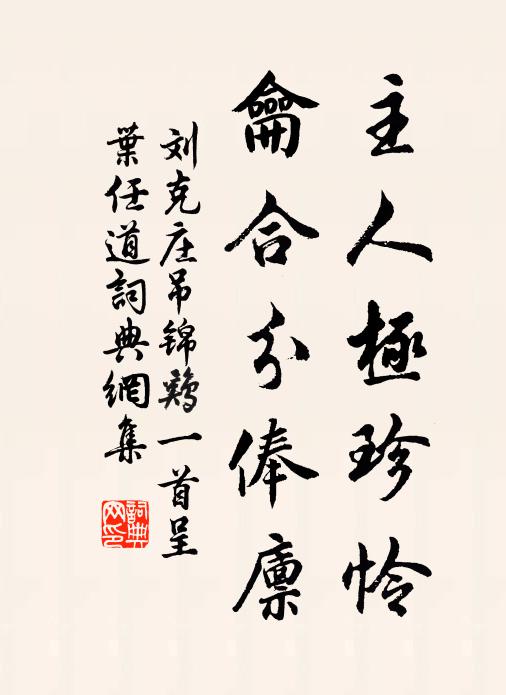 主人極珍怜
龠合分俸廩
刘克庄吊锦鸡一首呈
葉任道詞典網集
詞典网印